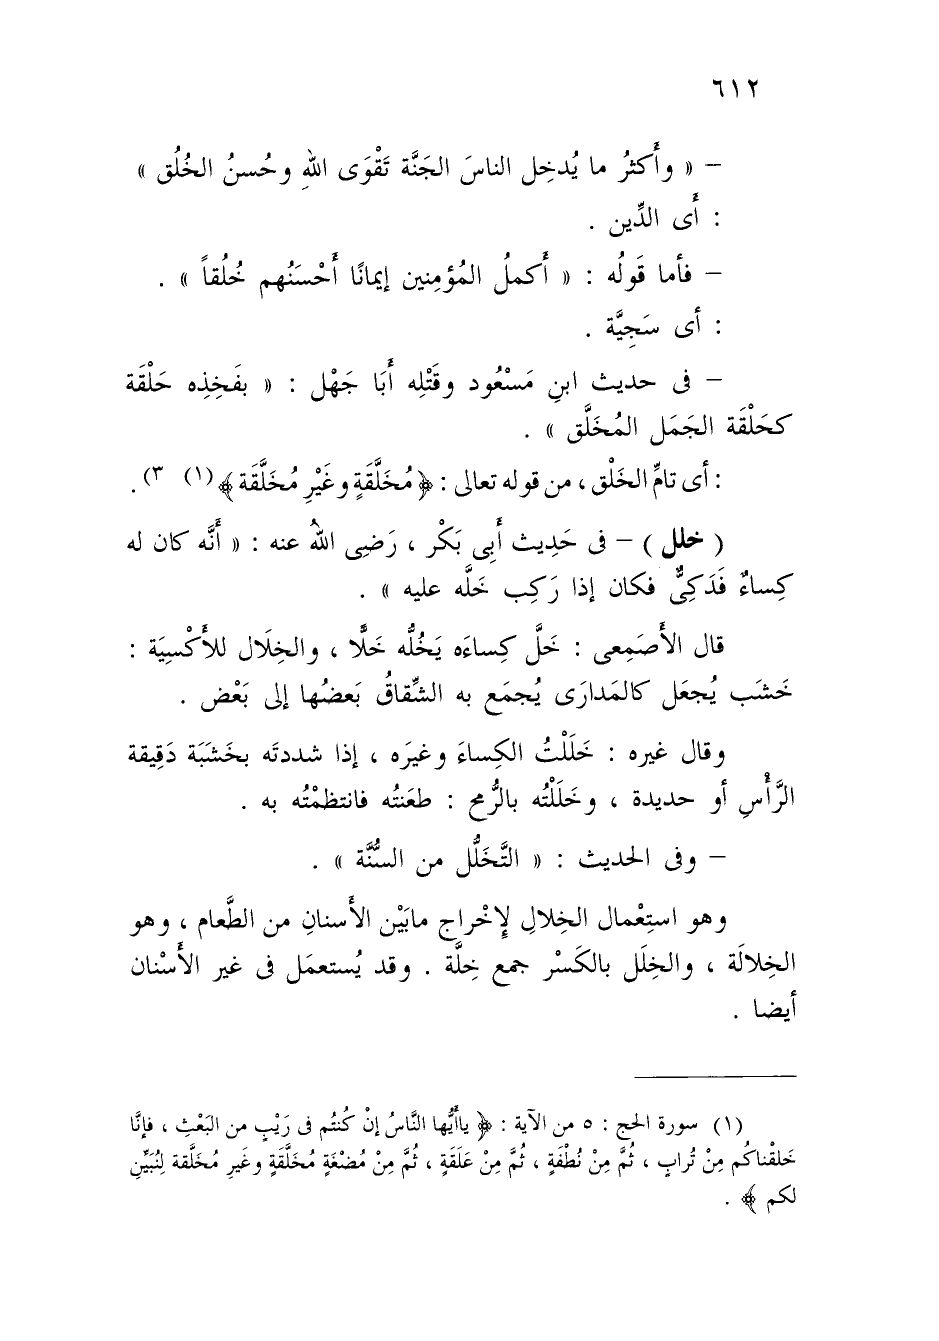 ٦١٢
– « وأَكثرُ ما يُدخِل الناسَ الجَنَّة تَقْوَى اللهِ وحُسنُ الخُلُق »
: أَى الدِّين .
– فأما قَولُه : « أَكملُ المُؤمِنين إيمانًا أَحْسَنُهم خُلُقاً » .
: أى سَجِيَّة .
– فى حديث ابنِ مَسْعُود وقَتْلِه أَبَا جَهْل : « بفَخِذِه حَلْقَة
كحَلْقَة الجَمَل المُخَلَّق » .
: أى تامِّ الخَلْق ، من قوله تعالى : ﴿ مُخَلَّقَةٍ وغَيْرِ مُخَلَّقَة ﴾ (١) ٣) .
( خلل ) – فى حَدِيث أَبِى بَكْر ، رَضِى اللهُ عنه : « أَنَّه كان له
كِساءٌ فَدَكِىٌّ فكان إذا رَكِب خَلَّه عليه » .
قال الأَصَمِعى : خَلَّ كِساءَه يَخُلُّه خَلًّا ، والخِلَال للأَكْسِيَة :
خَشَب يُجعَل كالمَدارَى يُجمَع به الشِّقاقُ بَعضُها إلى بَعْض .
وقال غيره : خَلَلْتُ الكِساءَ وغيرَه ، إذا شددتَه بخَشَبَة دَقِيقة
الرَّأْسِ أو حديدة ، وخَلَلْتُه بالرُّمح : طعَنتُه فانتظمْتُه به .
– وفى الحديث : « التَّخَلُّل من السُّنَّة » .
وهو استِعْمال الخِلالِ لإِخْراج مابَيْن الأَسنانِ من الطَّعام ، وهو
الخِلالَة ، والخِلَل بالكَسْر جمع خِلَّة . وقد يُستعمَل فى غير الأَسْنان
أيضا .
(١) سورة الحج : ٥ من الآية : ﴿ ياأَيُّها النَّاسُ إنْ كُنتُم فى رَيْبٍ من البَعْثِ ، فإنَّا
خَلقْناكُم مِنْ تُرابٍ ، ثُمَّ مِنْ نُطْفَةٍ ، ثُمَّ مِنْ عَلَقَةٍ ، ثُمَّ مِنْ مُضْغَةٍ مُخَلَّقَةٍ وغَيرِ مُخَلَّقة لِنُبَيِّنَ
لكم ﴾ .